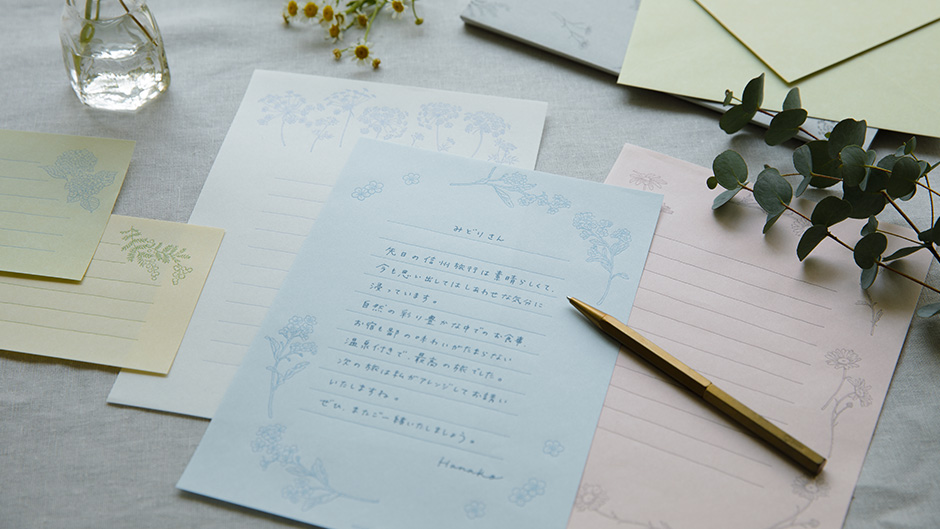 みどりさん
先日の信州旅行は素晴らしくて、
今も思い出してはしあわせな気分に
浸っています。
自然の彩り豊かな中でのお食事
お宿も鄙の味わいがたまらない
温泉付きで、最高の旅でした。
次の旅は私がアレンジしてお誘い
いたしますね。
ぜひ、またご一緒いたしましょう。
Hanako